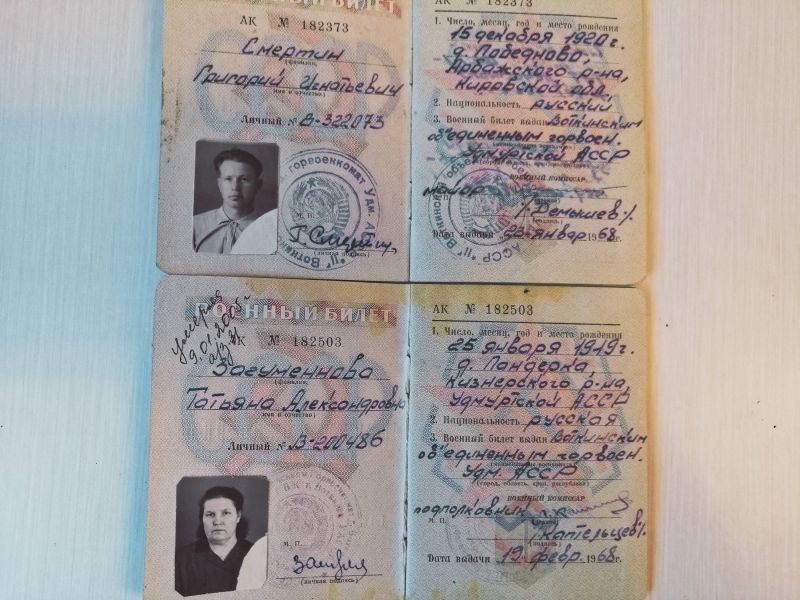 ВОЕННЫЙ БИЛЕТ
АК № 182373
Смертин
(фамилия)
Григорий Игнатьевич
имя и отчество)
Личный № В-322073
горвоенкомат Удм. АССР
М. П.
(личная подпись)
АК № 182373
1. Число, месяц, год и место рождения
15 декабря 1920 г.
Арбажского р-на,
Кировской обл.
2. Национальность русский
3. Военный билет выдан Воткинским
объединенным горвоен.
Удмуртской АССР
ВОЕННЫЙ КОМИССАР
майор
(подпись)
Дата выдачи 23 январ 1968 г.
ВОЕННЫЙ БИЛЕТ
умерла
АК № 182503
Загуменнова
(фамилия)
Татьяна Александровна
имя и отчество)
Личный № В-200486
М. П.
(личная подпись)
АК № 182503
1. Число, месяц, год и место рождения
25 января 1919 г.
д. Пандерка
Кизнерского р-на,
Удмуртской АССР
2. Национальность русская
3. Военный билет выдан Воткинским
объединенным горвоен.
Удм. АССР
(город, область, край, республика)
ВОЕННЫЙ КОМИССАР
подполковник
М. П.
(подпись)
Дата выдачи 19 февр. 1968 г.